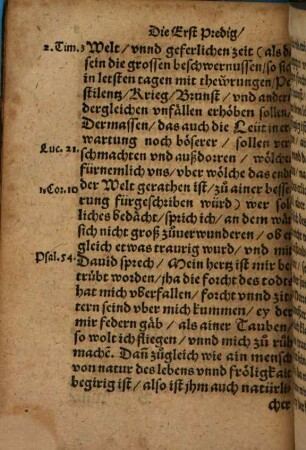 Die Erst Predig/
2. Tim. 3 Welt/ vnnd geferlichen zeit (als da
sein die grossen beschwernussen/ so sich
in letsten tagen mit thewrungen/ Pe
stilentz/ Krieg/ Brunst/ vnd andern
dergleichen vnfällen erhöben sollen/
Dermassen/ das auch die Leüt in er
Luc. 21. wartung noch böserer/ sollen ver
schmachten vnd außdorren/ wölches
fürnemlich vns/ vber wölche das ends
1. Cor. 10 der Welt gerathen ist/ zů ainer besse
rung fürgeschriben würd) wer sol
liches bedächt/ sprich ich/ an dem wär
sich nicht groß zůuerwunderen/ ob er
gleich etwas traurig wurd/ vnd mit
Psal. 54. Dauid sprech/ Mein hertz ist mir be
trübt worden/ jha die forcht des todts
hat mich vberfallen/ forcht vnnd zit
tern seind vber mich kummen/ ey der
mir federn gäb/ als ainer Tauben/
so wolt ich fliegen/ vnnd mich zů růh
machē. Dañ zůgleich wie ain mensch
von natur des lebens vnnd fröligkait
begirig ist/ also ist jhm auch natürli
cher